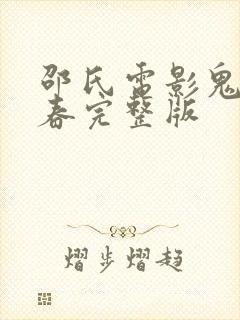 邵氏电影鬼
春完整版
熠步熠趋